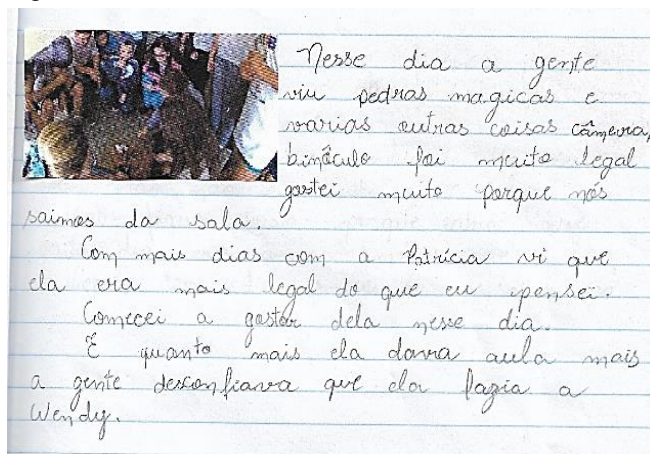 Nesse dia a gente
viu pedras magicas e
varias outras coisas câmera,
binóculo foi muito legal
gostei muito porque nós
saimos da sala.
Com mais dias com a Patrícia vi que
ela era mais legal do que eu pensei.
Comecei a gostar dela nesse dia.
E quanto mais ela dava aula mais
a gente desconfiava que ela fazia a
Wendy.